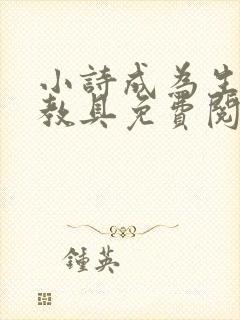 小詩成為生
教具免費閱
鍾英